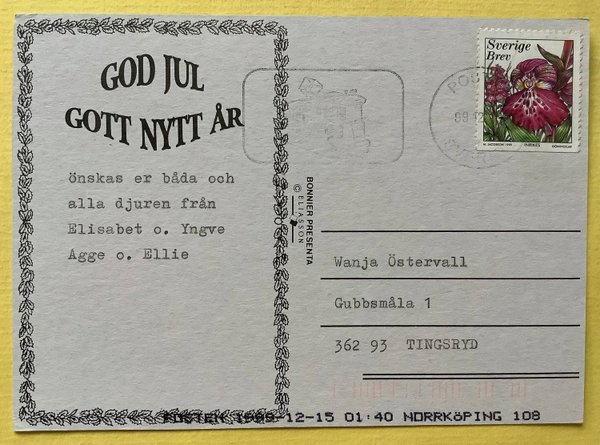 GOD JUL
GOTT NYTT ÅR
önskas er båda och
alla djuren från
Elisabet o. Yngve
Agge o. Ellie
BONNIER PRESENTA
© ELIASSON
Sverige
Brev
INRIKES
Wanja Östervall
Gubbsmåla 1
362 93 TINGSRYD
POSTEN 1999-12-15 01:40 NORRKÖPING 108